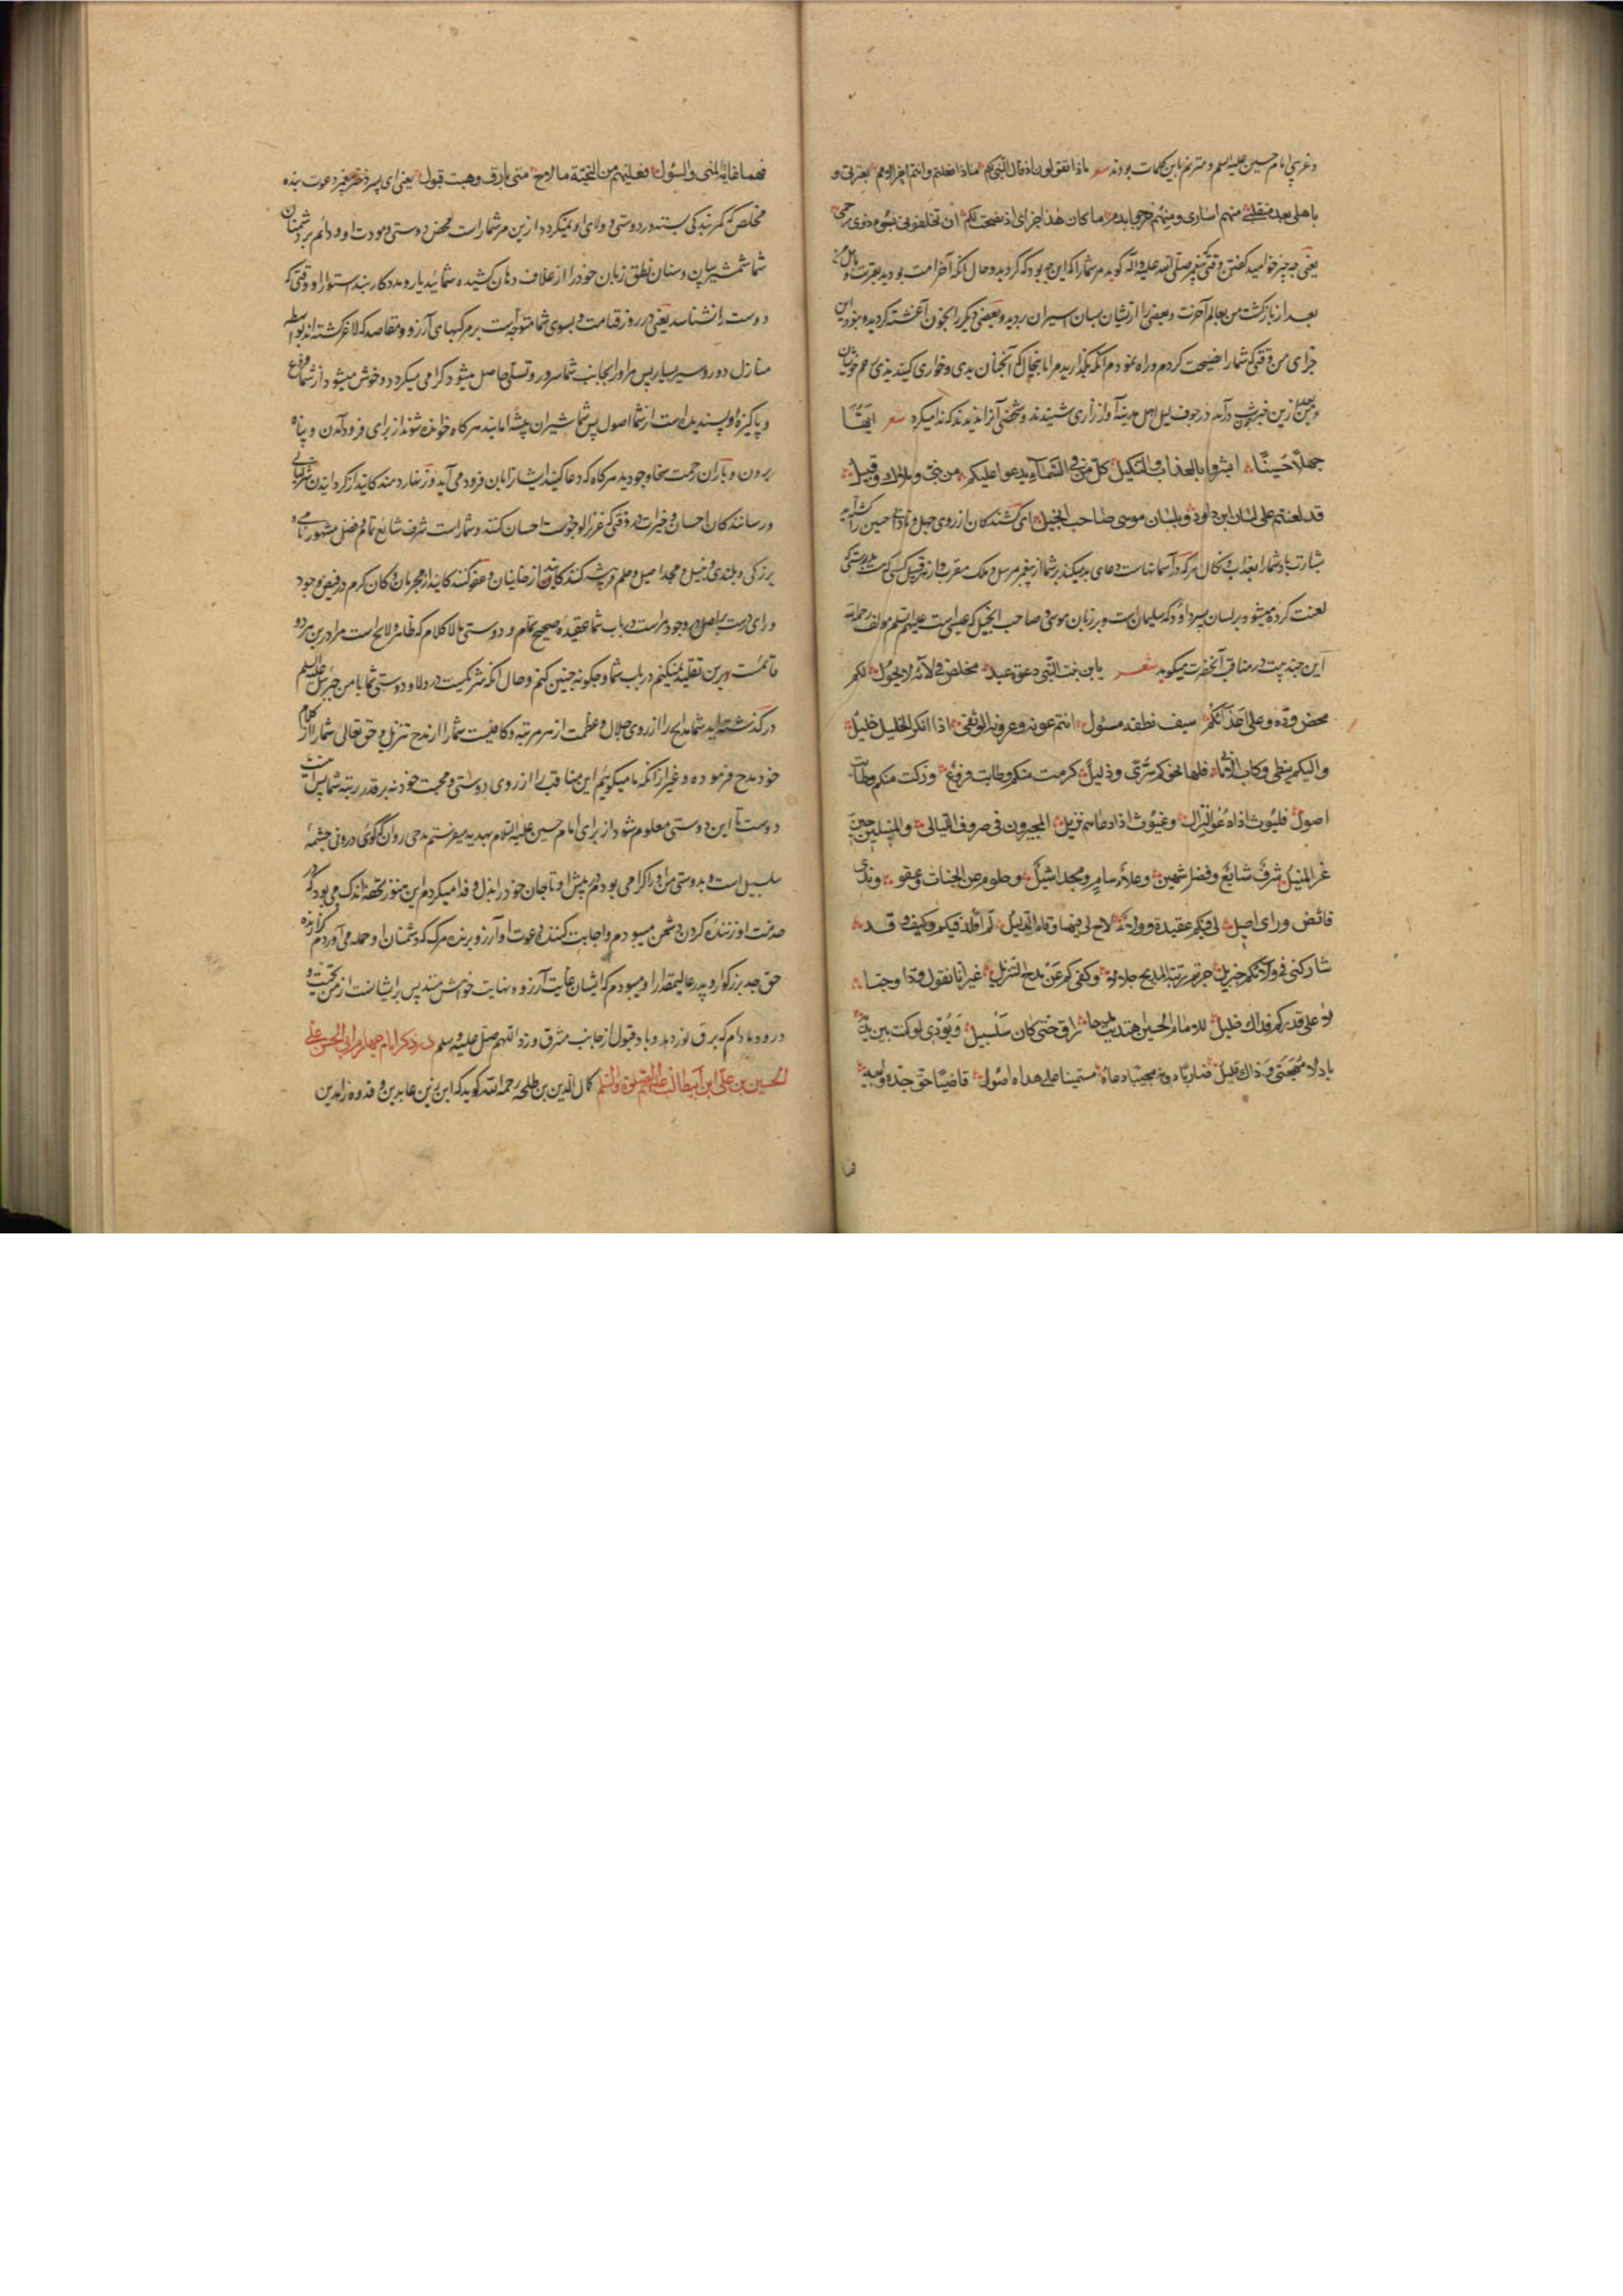 و عزیزی امام حسین علیه السلم و مترنم باین کلمات بودند شعر ماذا تقولون اذ قال النبی لکم ماذا فعلتم وانتم اخر الامم بعترتی و
باهلی بعد منقلبی منهم اساری ومنهم ضرجوا بدم ما کان هذا جزای اذ نصحت لکم ان تخلفونی بسوء فی ذوی رحمی
یعنی چه چیز خواهید گفتن وقتی که پیغمبر صلی الله علیه واله گوید مر شما را که این چه بود که کردید و حال آنکه آخر امت بودید بعترت و اهل من
بعد از بازگشت من بعالم آخرت و بعضی را از ایشان بسان اسیران بردید و بعضی دیگر را بخون آغشته کردید و نبود این
جزای من وقتی که شما را نصیحت کردم و راه نمودم آنکه بگذارید مرا بآنچنان بدی و خواری کنید بذی رحم خویشان
و بعد ازین خبر درآمد در جوف لیل اهل مدینه آواز زاری شنیدند و شخصی آنرا ندیدند که ندا میکرد شعر ایها
جهلا حسینا ابشروا بالعذاب والتنکیل کل من فی السماء یدعوا علیکم من نبی وملاک وقبیل
قد لعنتم علی لسان ابن داود وبلسان موسی صاحب الانجیل ای کشندگان از روی جهل و نادانی حسین را
بشارت باد شما را بعذاب و نکال هر که در آسمانهاست دعای بد میکند بر شما از پیغمبر مرسل و ملک مقرب و از هر قبیل کسی که هست بدرستی که
لعنت کرده میشوید بر لسان پسر داود که سلیمان است و بر زبان موسی و صاحب انجیل که عیسی است علیهم السلم مولف رحمه الله
این چند بیت در مناقب آنحضرت میگوید شعر یابن بنت النبی دعوة عبد مخلص فی ولائه لا یحول لکم
محض وده وعلی اعدائکم سیف نطقه مسلول انتم عونه وعروته الوثقی اذا انکر الخلیل خلیل
والیکم ینضی رکاب الامانی فلها نحوکم سری وذمیل کرمت منکم وطابت فروع وزکت منکم وطابت
اصول فلیوث اذا دعوا لنزال وغیوث اذا دعاهم نزیل المجیرون فی صروف اللیالی والمنیلون حین
عز المنیل شرف شایع وفضل شهیر وعلاء سام ومجد اثیل وحلوم عن الجناة وعفو وندی
فائض ورای اصیل لی فیکم عقیدة وولاء لاح لی فیهما وقام الدلیل لم اقلد فیکم وکیف وقد
شارکنی فی ولائکم جبریل جزتم رتبة المدیح جلالا وکفی کم عن مدح التنزیل غیر انا نقول ودا وحبا
لا علی قدرکم فذاک جلیل للامام الحسین اهدیت مدحا راق حتی کان سلسبیل وبودی لو کنت بین یدیه
باذلا مهجتی وذاک قلیل ضاربا دونه مجیبا دعاه مستمیتا علی عداه اصول قاضیا حق جده وابیه
فهما غایة المنی والسؤل فعلیهم من التحیة ما لاح متی بارق وهبت قبول یعنی ای پسر دختر پیغمبر دعوت بنده
مخلص که کمر بندگی بسته در دوستی و ولای او نمیگردد از این مر شما راست محض دوستی و مودت او و دائم بر دشمنان
شما شمشیر بیان و سنان نطق زبان خود را از غلاف دهان کشیده شمائید یار و مددکار بند استوار او وقتی که
دوست را نشناسد یعنی در روز قیامت و بسوی شما متوجه است بر مرکبهای آرزو و مقاصد که لاغر گشته اند بواسطه
منازل دور و سیر بسیار پس مر او را بجانب شما سرور و تسلی حاصل میشود گرامی میگردد و خوش میشود از شما فروع
و پاکیزه و پسندیده است از شما اصول پس شما شیران بیشه امانید هر گاه خوانده شوند از برای فرود آمدن و پناه
بردن و باران رحمت سخا و جودید هر گاه که دعا کنید ایشانرا باین فرود می آید و زنهار دهندگانید از گردانیدن
و رسانندگان احسان و خیرات در وقتی که عزیز الوجودست احسان کننده و شما راست شرف شایع تام و فضل مشهور نامی و
بزرگی و بلندی و مجد اصیل و حلم و ازخاینان و عفو کنندگانید از مجرمان و کان کرم در فیض وجود
و رای درست بر اصل در وجود مر است در باب شما عقیده صحیح تمام و دوستی مالا کلام که ظاهر و لایح است مرا درین هر دو
قائمست و برین تقلید نمیکنم در باب شما و چگونه چنین کنم و حال آنکه شریکست در ولا و دوستی شما با من جبرئیل علیه السلم
درگذشته اید شما مدایح را از روی جلال و عظمت از هر مرتبه و کافیست شما را از مدح تنزیل و حق تعالی شما را در کلام
خود مدح فرموده و غیر از آنکه ما میگوئیم این مناقب را از روی دوستی و محبت خود نه بر قدر رتبه شما پس
دوست تا این دوستی معلوم شود از برای امام حسین علیه السلام بهدیه میفرستم مدحی روان که گوئی در روانی چشمه
سلسبیل است و بدوستی من او را گرامی بودم در پیش او تا جان خود را بذل و فدا میکردم این هنوز تحفه اندک می بود که در
خدمت او زننده گردن دشمن میبودم و اجابت کننده دعوت او آرزو برنده مرگ که دشمنان او حمله می آوردم گزارنده
حق جد بزرگوار و پدر عالیمقدار او میبودم که ایشان غایت آرزو و نهایت خواهش منند پس بر ایشانست از من تحیت و
درود مادام که برق نور دهد و باد قبول از جانب مشرق وزد اللهم صل علیه وسلم در ذکر امام چهارم ابی الحسن علی
الحسین بن علی ابن ابیطالب علیهم الصلوة والسلم کمال الدین بن طلحه رحمه الله گوید که این زین عابدین و قدوه زاهدین